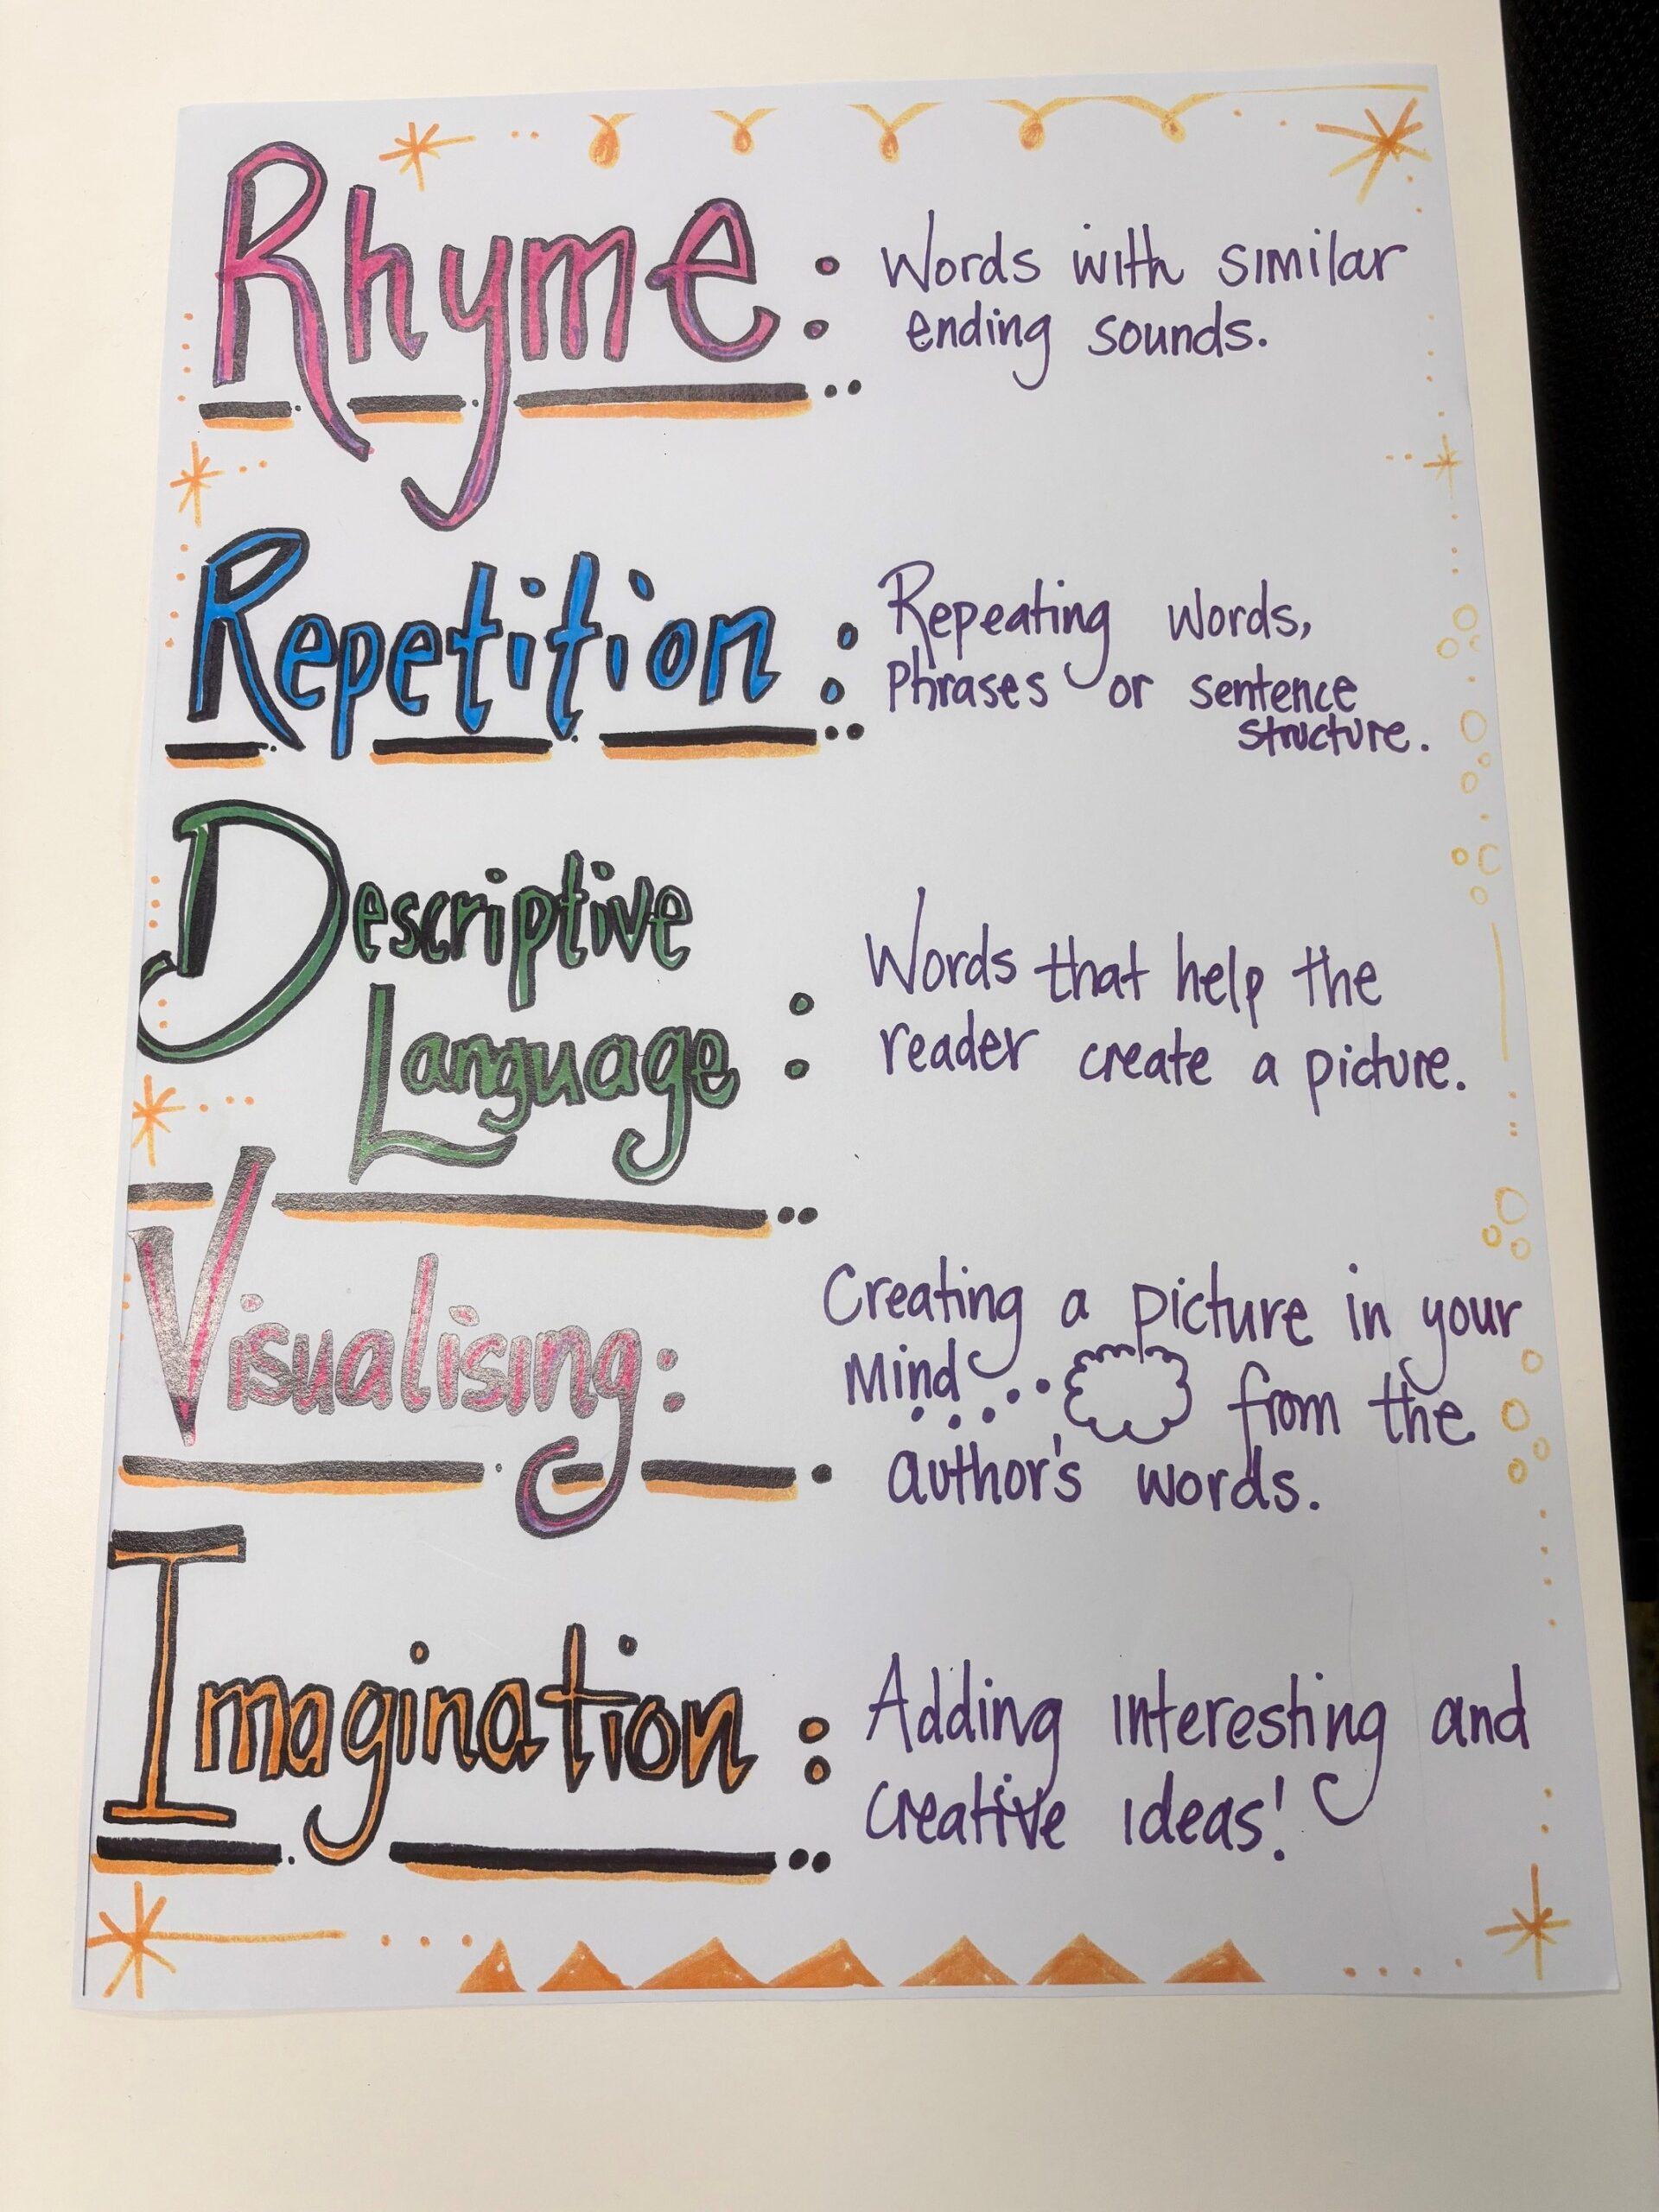 Rhyme : Words with similar
ending sounds.
Repetition : Repeating words,
Phrases or sentence
structure.
Descriptive
Language :
Words that help the
reader create a picture.
Visualising:
Creating a picture in your
Mind
from the
author's words.
Imagination : Adding interesting and
creative ideas!